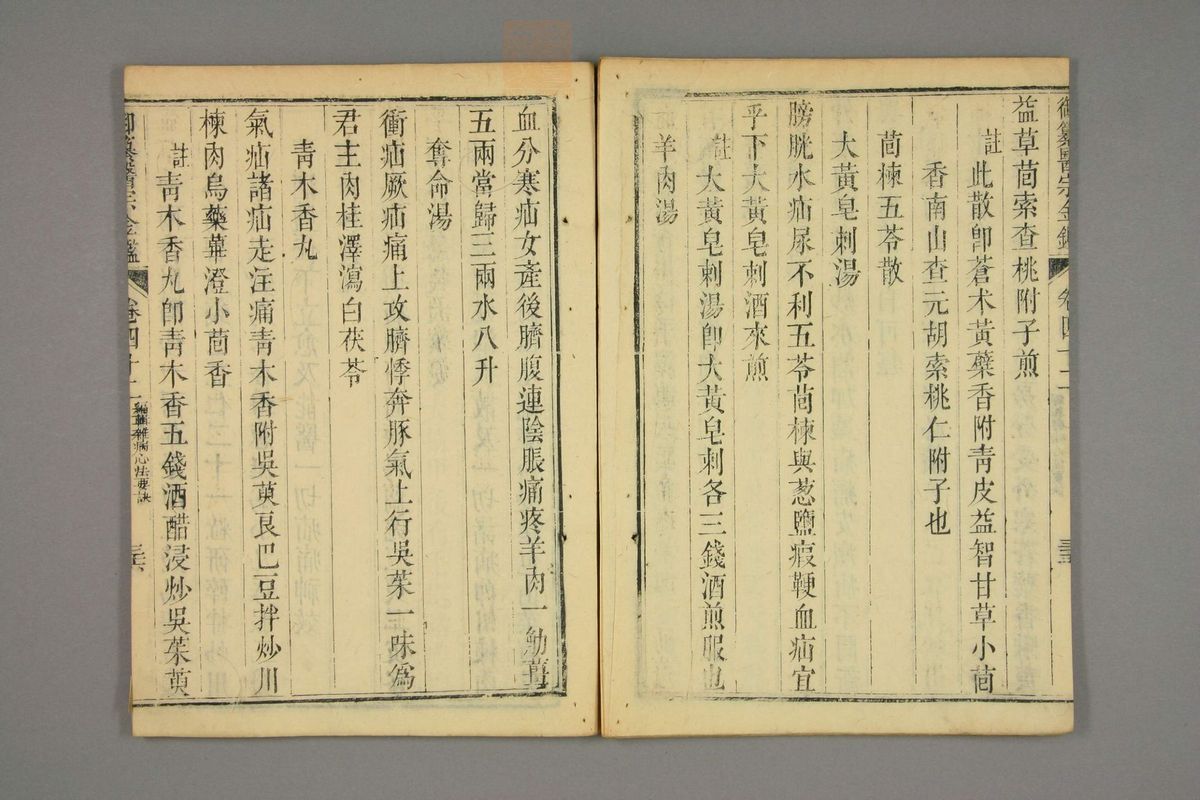 御纂醫宗金鑑 卷四十二 三五
益草茴索查桃附子煎
註 此散卽蒼术黃蘗香附靑皮益智甘草小茴
香南山查元胡索桃仁附子也
茴楝五苓散
大黃皂刺湯
膀胱水疝尿不利五苓茴楝與葱鹽瘕鞕血疝宜
乎下大黃皂刺酒來煎
註 大黃皂刺湯卽大黃皂刺各三錢酒煎服也
羊肉湯
血分寒疝女產後臍腹連陰脹痛疼羊肉一觔薑
五兩當歸三兩水八升
奪命湯
衝疝厥疝痛上攻臍悸奔豚氣上行吳茱一味爲
君主肉桂澤瀉白茯苓
靑木香丸
氣疝諸疝走注痛靑木香附吳萸良巴豆拌炒川
楝肉烏藥蓽澄小茴香
註 靑木香丸卽靑木香五錢酒醋浸炒吳茱萸
御纂醫宗金鑑 卷四十二 編輯雜病心法要訣 三六